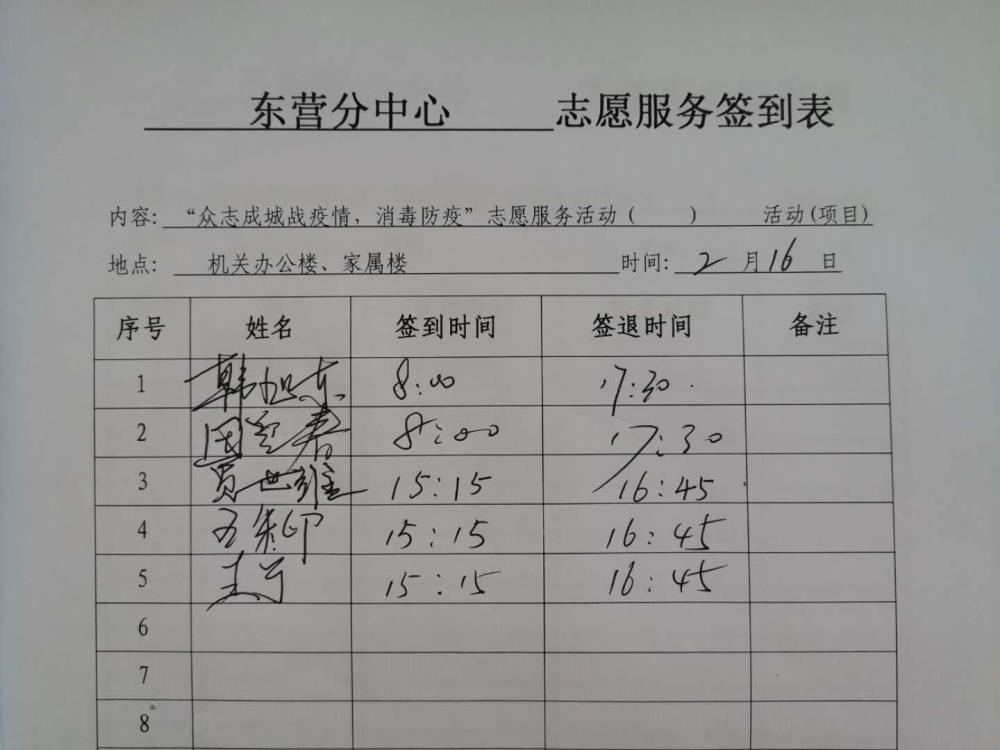 东营分中心 志愿服务签到表
内容: “众志成城战疫情，消毒防疫”志愿服务活动（ ） 活动(项目)
地点: 机关办公楼、家属楼 时间: 2 月 16 日
序号 姓名 签到时间 签退时间 备注
1 韩旭东 8:00 17:30
2 8:00 17:30
3 贾世雄 15:15 16:45
4 15:15 16:45
5 15:15 16:45
6
7
8